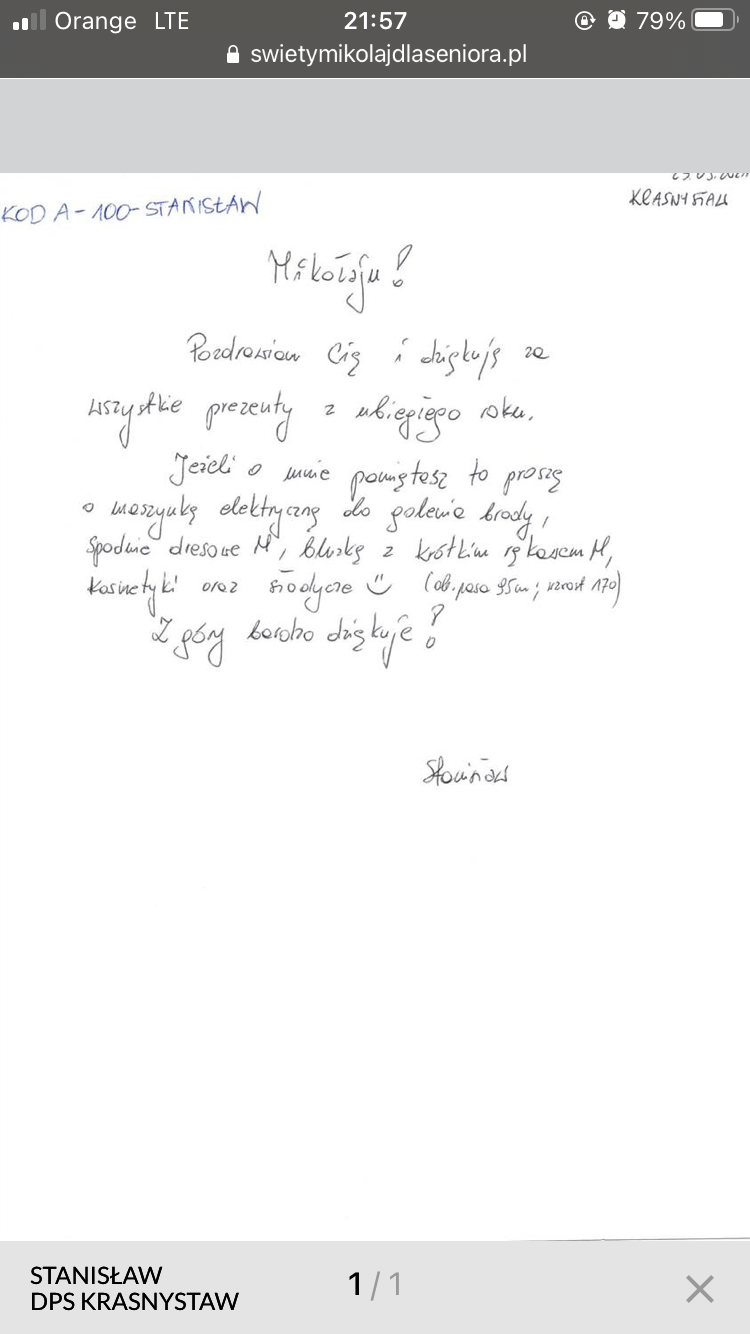 Orange LTE 21:57 79%
swietymikolajdlaseniora.pl
KOD A-100-STANISŁAW
KRASNYSTAW
Mikołaju!
Pozdrawiam Cię i dziękuję za
wszystkie prezenty z ubiegłego roku.
Jeżeli o mnie pamiętasz to proszę
o maszynkę elektryczną do golenia brody,
spodnie dresowe M, bluzkę z krótkim rękawem M,
kosmetyki oraz słodycze (ob. pasa 95cm; wzrost 170)
Z góry bardzo dziękuję!
Stanisław
STANISŁAW
DPS KRASNYSTAW
1/1